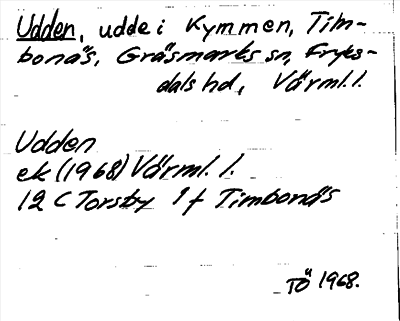 Udden, udde i Kymmen, Tim-
bonäs, Gräsmarks sn, Fryks-
dals hd, Värml. l.
Udden
ek (1968) Värml. l.
12 C Torsby 1 f Timbonäs
TÖ 1968.